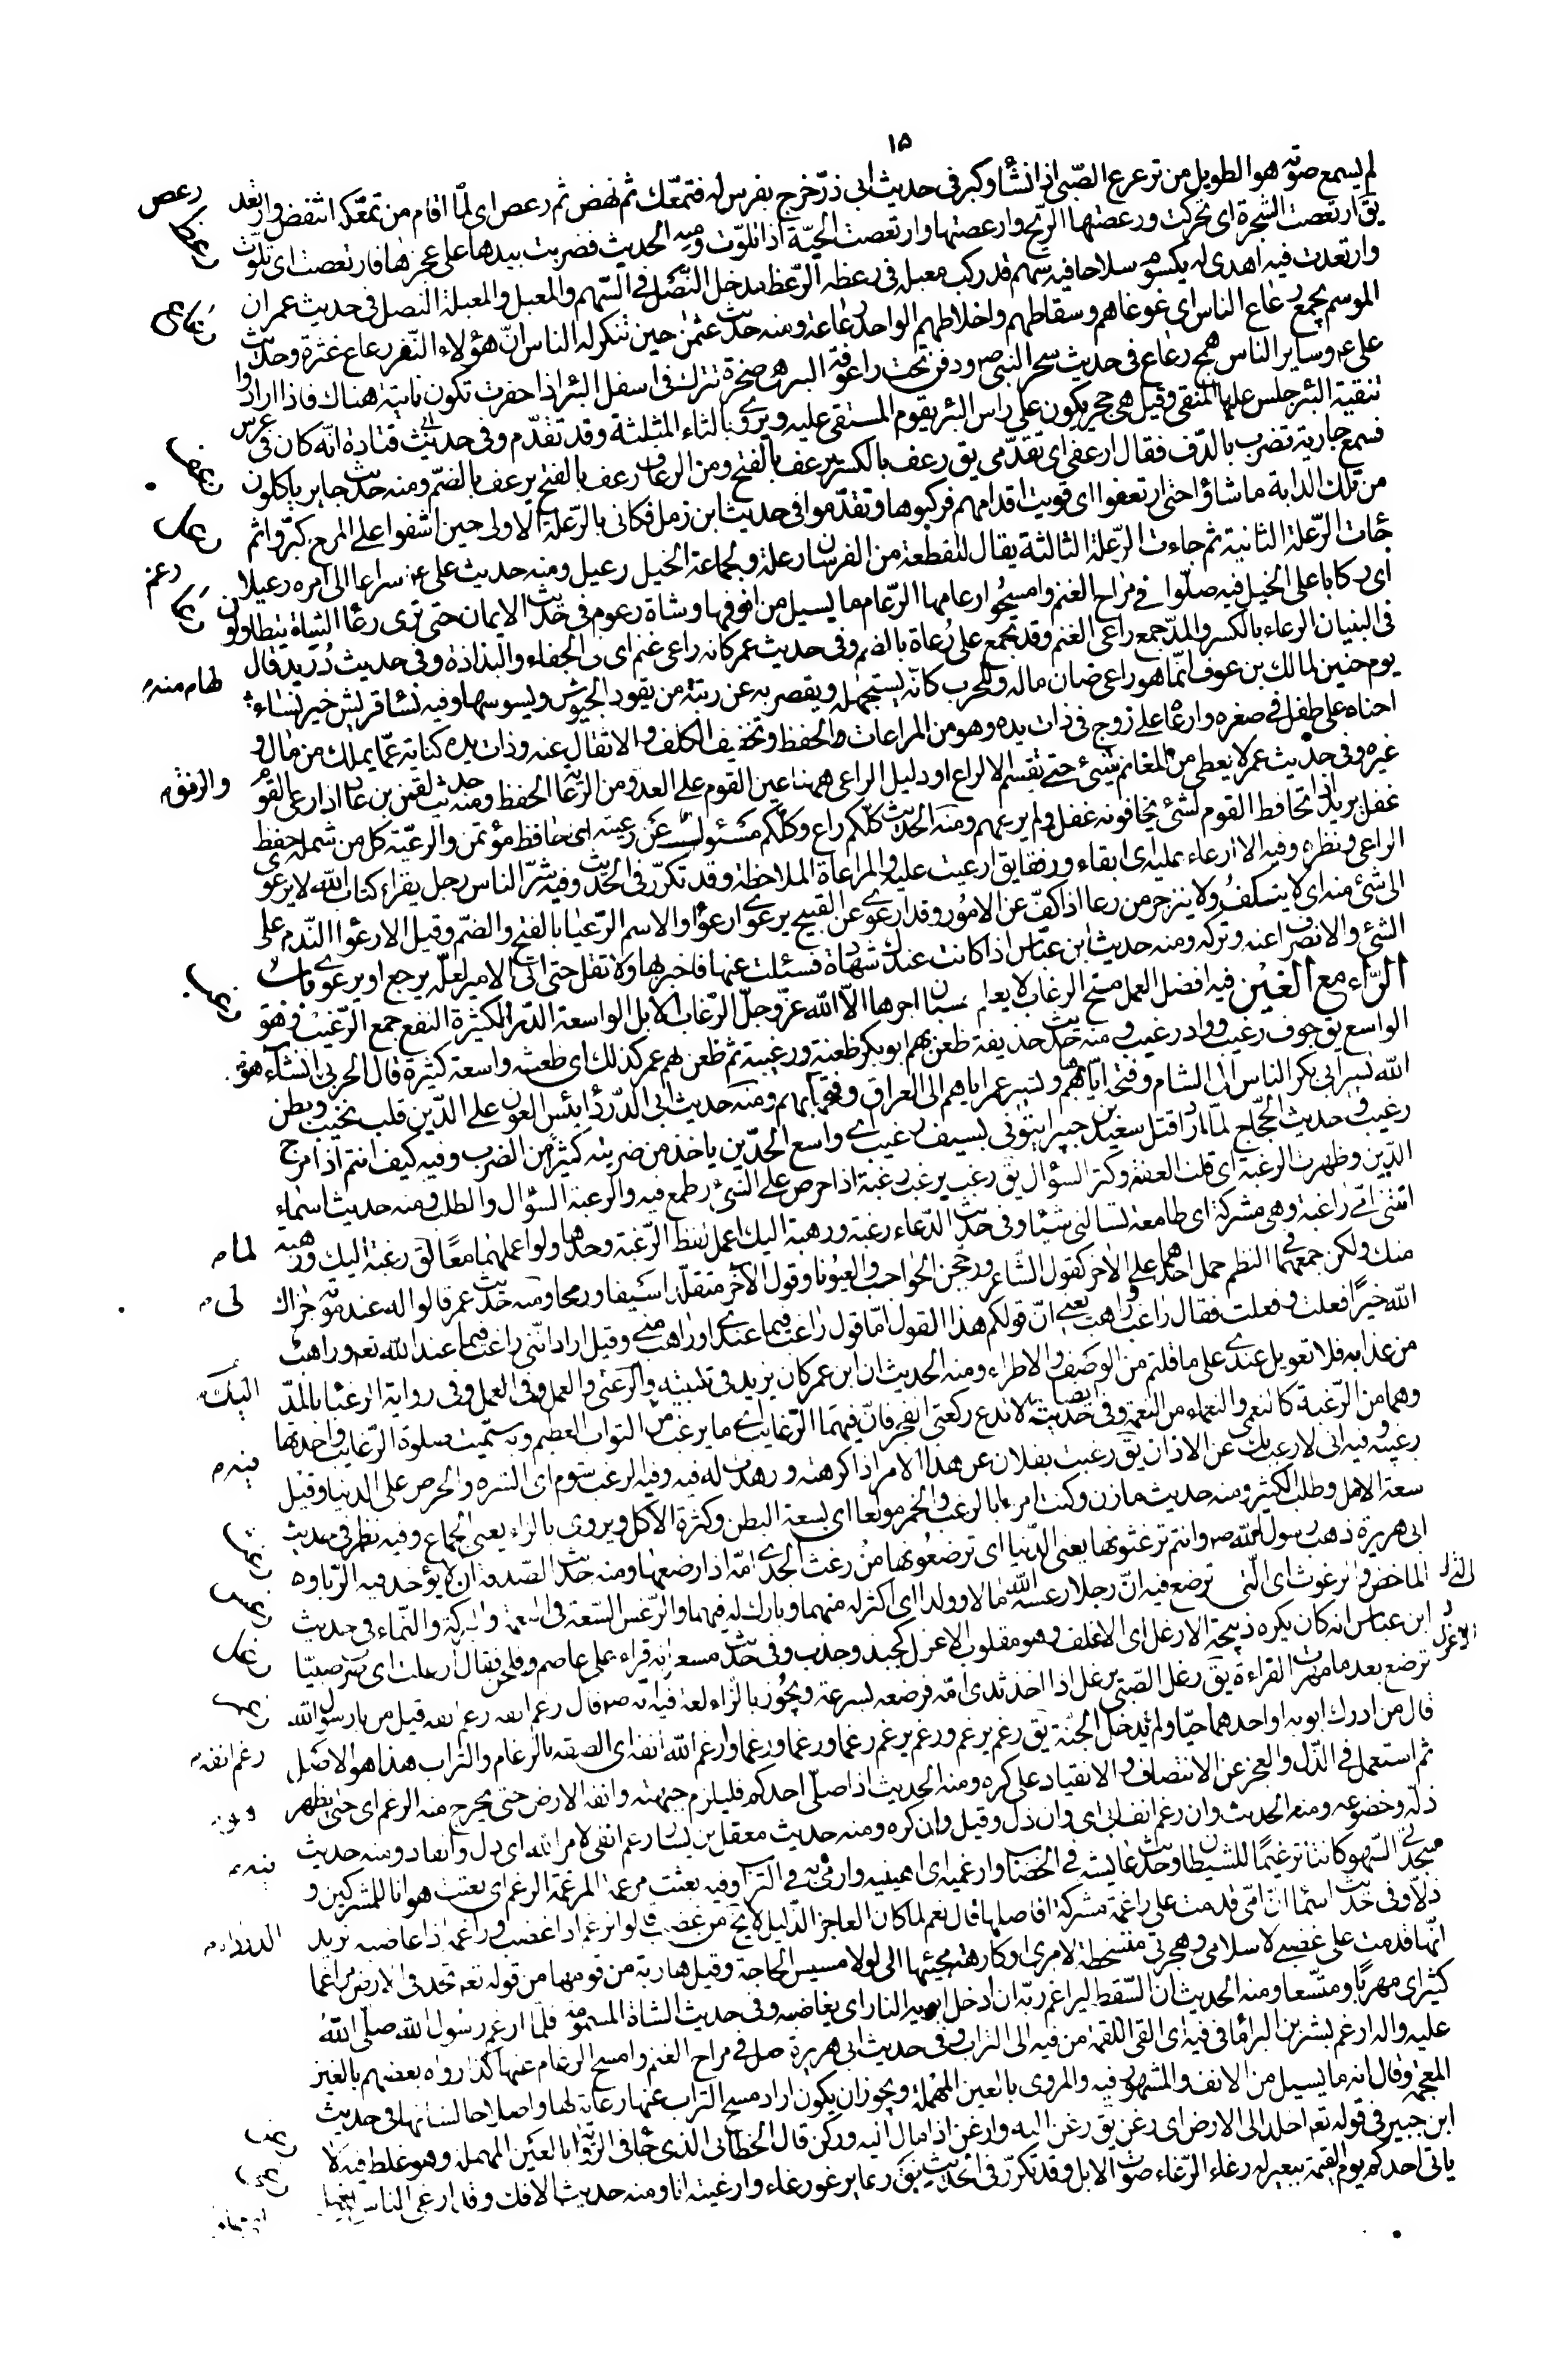 ١٥
لم يسمع صوته هو الطويل من ترعرع الصّبى اذا نشأ وكبر فى حديث ابى ذرّ خرج بفرس له فتمعّك ثم نهض ثم رعص اى لمّا اقام من تمعّكه انتفض وارتعد
رعص
يق ارتعصت الشجرة اى تحركت ورعصتها الريح وارعصتها وارتعصت الحيّة اذا تلوّت ومنه الحديث فضربت بيدها على عجزها فارتعصت اى تلوّت
وارتعدت فيه اهدى له يكسوم سلاحا فيه سهم قد ركب معبله فى رعظه الرّعظ مدخل النّصل فى السّهم والمعبل والمعبلة النصل فى حديث عمر ان
الموسم يجمع رعاع الناس اى غوغاهم وسقاطهم واخلاطهم الواحد رعاعة ومنه حديث عثمن حين تنكر له الناس انّ هؤلاء النّفر رعاع غثرة وحديث
على ع وساير الناس همج رعاع فى حديث سحر النبى ص ودفن تحت راعوفة البئر هى صخرة تترك فى اسفل البئر اذا حفرت تكون ناتية هناك فاذا ارادوا
تنقية البئر جلس عليها المنقى وقيل هى حجر يكون على راس البئر يقوم المستقى عليه ويروى بالثاء المثلثة وقد تقدّم وفى حديث قتادة انّه كان فى عرس
فسمع جارية تضرب بالدّف فقال ارعفى اى تقدّمى يق رعف بالكسر يرعف بالفتح ومن الرعاف رعف بالفتح يرعف بالضمّ ومنه حديث جابر ياكلون
من تلك الدابة ما شاؤا حتى ارتعفوا اى قويت اقدامهم فركبوها وتقدّموا فى حديث ابن زمل فكانى بالرّعلة الاولى حين اشفوا على المرج كبّروا ثم
جاءت الرّعلة الثانية ثم جاءت الرّعلة الثالثة يقال للقطعة من الفرسان رعلة ولجماعة الخيل رعيل ومنه حديث على ع سراعا الى امره رعيلا
رعم
اى ركابا على الخيل فيه صلّوا فى مراح الغنم وامسحوا رعامها الرّعام ما يسيل من انوفها وشاة رعوم فى حديث الايمان حتى ترى رعاء الشاة يتطاولون
فى البنيان الرعاء بالكسر والمدّ جمع راعى الغنم وقد يجمع على رُعاة بالضم وفى حديث عمر كانه راعى غنم اى فى الجفاء والبذاذة وفى حديث دُريد قال
يوم حنين لمالك بن عوف انّما هو راعى ضان ماله وللحرب كانّه يستجهله ويقصر به عن رتبة من يقود الجيوش ويسوسها وفيه نساء قريش خير نساء
احناه على طفل فى صغره وارعاه على زوج فى ذات يده وهو من المراعات والحفظ وتخفيف الكلف والاثقال عنه وذات يده كناية عمّا يملك من مال و
غيره وفى حديث عمر لا يعطى من المغانم شىء حتى تقسم الا لراع او دليل الراعى ههنا عين القوم على العدو من الرعاية الحفظ ومنه حديث لقمن بن عاد اذا رعى القوم
والرفق
غفل يريد اذا تحافظ القوم لشىء يخافونه غفل ولم يرعهم ومنه الحديث كلّكم راع وكلّكم مسئول عن رعيته اى حافظ مؤتمن والرعيّة كل من شمله حفظ
الراعى ونظره وفيه الا ارعاء عليه اى ابقاء ورفقا يق ارعيت عليه والمراعاة الملاحظة وقد تكرّر فى الحديث وفيه شرّ الناس رجل يقراء كتاب الله لا يرعوى
الى شىء منه اى لا ينكف ولا ينزجر من رعا اذا كفّ عن الامور وقد ارعوى عن القبيح يرعوى ارعواء والاسم الرّعيا بالفتح والضّم وقيل الارعواء النّدم على
الشىء والانصراف عنه وتركه ومنه حديث ابن عبّاس اذا كانت عندك شهادة فسئلت عنها فاخبر بها ولا تقل حتى اتى الامير لعلّه يرجع او يرعوى باب
الرّاء مع الغين فيه افضل العمل منح الرغاب لا يعلم حسبان اجرها الّا الله عزّ وجلّ الرّغاب الابل الواسعة الدّر الكثيرة النفع جمع الرّغيب وهو
الواسع يق جوف رغيب وواد رغيب ومنه حديث حذيفة ظعن بهم ابو بكر ظعنة رغيبة ثم ظعن بهم عمر كذلك اى ظعنة واسعة كثيرة قال الحربى انشاء هو
الله تسيير ابى بكر الناس الى الشام وفتحه اياها بهم وتسيير عمر اياهم الى العراق وفتحها بهم ومنه حديث ابى الدّرداء بئس العون على الدّين قلب نخيب وبطن
رغيب وحديث الحجّاج لمّا اراد قتل سعيد بن جبير ايتونى بسيف رغيب اى واسع الحدّين ياخذ من ضربته كثيرًا من الضرب وفيه كيف انتم اذا مرج
الدّين وظهرت الرغبة اى قلت العفة وكثر السؤال يق رغب يرغب رغبة اذا حرص على الشىء وطمع فيه والرغبة السؤال والطلب ومنه حديث اسماء
اتتنى امّى راغبة وهى مشركة اى طامعة تسالنى شيئا وفى حديث الدّعاء رغبة ورهبة اليك اعمل لفظ الرّغبة وحدها ولو اعملهما معًا لق رغبة اليك ورهبة
منك ولكن لمّا جمعهما فى النظم حمل احدهما على الاخر كقول الشاعر وزججن الحواجب والعيونا وقول الآخر متقلّدا سيفا ورمحا ومنه حديث عمر قالوا له عند موته جزاك
الله خيرًا فعلت وفعلت فقال راغب وراهب يعنى انّ قولكم لى هذا القول امّا قول راغب فيما عندى او راهب منّى وقيل اراد انّنى راغب فيما عند الله تعه وراهب
من عذابه فلا تعويل عندى على ما قلتم من الوصف والاطراء ومنه الحديث ان ابن عمر كان يزيد فى تلبيته والرّغبى اليك والعمل وفى رواية الرغباء بالمدّ
وهما من الرّغبة كالنعمى والنعماء من النعمة وفى حديثه ايضا لا تدع ركعتى الفجر فانّ فيهما الرّغايب اى ما يرغب فيه من الثواب العظيم وبه سمّيت صلوة الرّغايب واحدتها
رغيبة وفيه انى لارغب بك عن الاذان يق رغبت بفلان عن هذا الامر اذا كرهته وزهدت له فيه وفيه الرغب شوم اى الشره والحرص على الدنيا وقيل
سعة الامل وطلب الكثير ومنه حديث مازن وكنت امرءا بالرغب والخمر مولعا اى بسعة البطن وكثرة الاكل ويروى بالزاء يعنى الجماع وفيه نظر فى حديث
ابى هريرة ذهب رسول الله ص وانتم ترغثونها يعنى الدّنيا اى ترضعونها من رغث الجدى امّه اذا رضعها ومنه حديث الصدقة ان لا يؤخذ فيه الربى و
الماخض والرغوث اى الّتى ترضع فيه انّ رجلا رغسه الله مالا وولدا اى اكثر له منهما وبارك له فيهما والرّغس السّعة فى النعمة والبركة والنّماء فى حديث
ابن عباس انه كان يكره ذبيحة الارغل اى الاغلف وهو مقلوب الاغرل كجبذ وجذب وفى حديث مسعر انّه قراء على عاصم فلحن فقال ارغلت اى صرت صبيّا
ترضع بعد ما مهرت القراءة يق رغل الصّبى يرغل اذا اخذ ثدى امّه فرضعه بسرعة ويجوز بالزاء لغة فيه انّه ص قال رغم انفه رغم انفه قيل من يا رسول الله
قال من ادرك ابويه او احدهما حيّا ولم يدخل الجنّة يق رغم يرغم ورغم يرغم رغما ورغما ورغما وارغم الله انفه اى الصقه بالرغام والتراب هذا هو الاصل
رغم انفه
ثم استعمل فى الذّل والعجز عن الانتصاف والانقياد على كره ومنه الحديث اذا صلّى احدكم فليلزم جبهته وانفه الارض حتى يخرج منه الرغم اى حتى يظهر
ذلّه وخضوعه ومنه الحديث وان رغم انف ابى اى وان ذلّ وقيل وان كره ومنه حديث معقل بن يسار رغم انفى لامر الله اى ذل وانقاد ومنه حديث
سجدتى السّهو كانتا ترغيمًا للشيطان وحديث عايشة فى الخضاب وارغميه اى اهينيه وارمى به فى التراب وفيه بعثت مرغمة المرغمة الرغم اى بعثت هوانا للمشركين و
ذلّا وفى حديث اسما انّ امّى قدمت علىّ راغمة مشركة افاصلها قال نعم لما كان العاجز الذّليل لا يخ من غضب قالوا ترغم اذا غضب وراغمه اذا غاضبه تريد
انّها قدمت علىّ غضبى لاسلامى وهجرتى متسخطة لامرى او كارهة مجيئها الى لولا مسيس الحاجة وقيل هاربة من قومها من قوله تعه يجد فى الارض مراغما
كثيرا اى مهربًا ومتّسعا ومنه الحديث ان السّقط ليراغم ربّه ان ادخل ابويه النار اى يغاضبه وفى حديث الشاة المسمومة فلمّا ارغم رسول الله صلّى الله
عليه واله ارغم بشر بن البراء ما فى فيه اى القى اللقمة من فيه الى التراب وفى حديث ابى هريرة صل فى مراح الغنم وامسح الرغام عنها كذا رواه بعضهم بالغين
المعجمة وقال انه ما يسيل من الانف والمشهور فيه والمروى بالعين المهملة ويجوز ان يكون اراد مسح التراب عنها رعاية لها واصلاحا لشانها فى حديث
ابن جبير فى قوله تعه اخلد الى الارض اى رغن يق رغن اليه وارغن اذا مال اليه وركن قال الخطابى الذى جاء فى الرواية بالعين المهملة وهو غلط فيه لا
ياتى احدكم يوم القيمة ببعير له رغاء الرّغاء صوت الابل وقد تكرّر فى الحديث يق رغا يرغو رغاء وارغيته انا ومنه حديث الافك وقد ارغى الناس